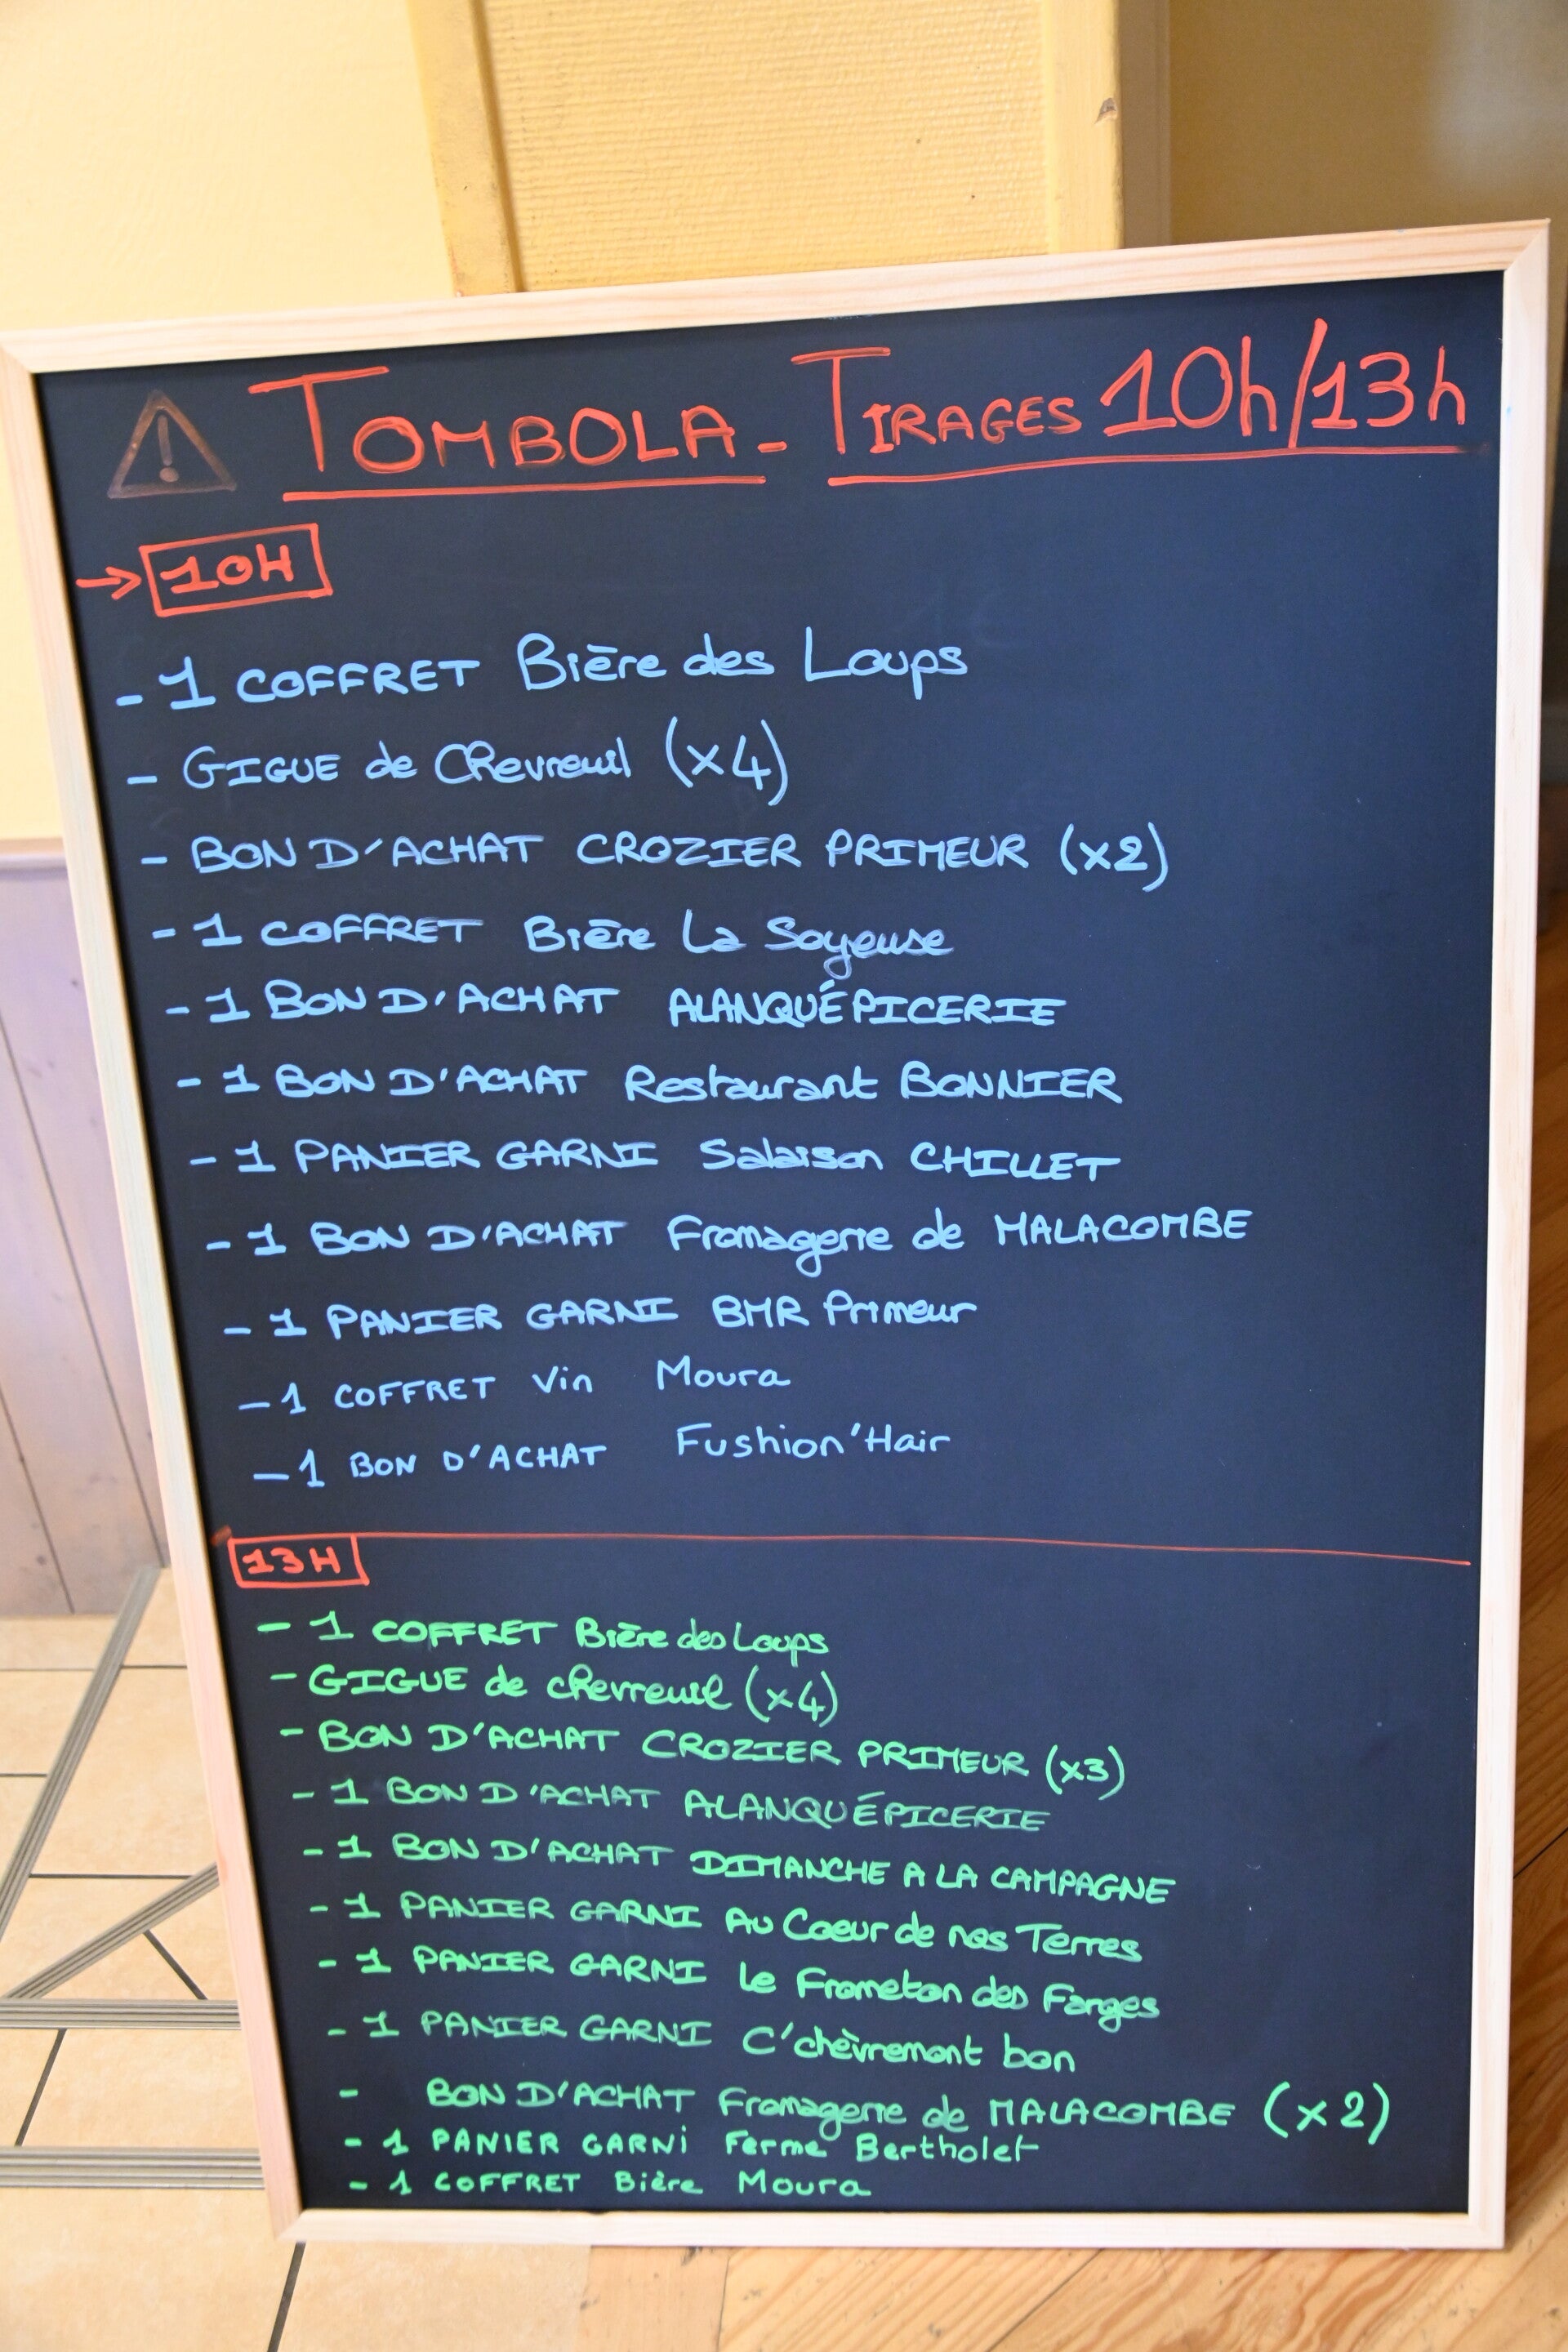 TOMBOLA - TIRAGES 10h/13h
→ 10H
- 1 COFFRET Bière des Loups
- GIGUE de Chevreuil (x4)
- BON D'ACHAT CROZIER PRIMEUR (x2)
- 1 COFFRET Bière La Soyeuse
- 1 BON D'ACHAT ALANQUÉPICERIE
- 1 BON D'ACHAT Restaurant BONNIER
- 1 PANIER GARNI Salaison CHILLET
- 1 BON D'ACHAT Fromagerie de MALACOMBE
- 1 PANIER GARNI BMR Primeur
- 1 COFFRET Vin Moura
- 1 BON D'ACHAT Fushion'Hair
13H
- 1 COFFRET Bière des Loups
- GIGUE de chevreuil (x4)
- BON D'ACHAT CROZIER PRIMEUR (x3)
- 1 BON D'ACHAT ALANQUÉPICERIE
- 1 BON D'ACHAT DIMANCHE A LA CAMPAGNE
- 1 PANIER GARNI Au Coeur de nos Terres
- 1 PANIER GARNI Le Frometon des Farges
- 1 PANIER GARNI C'chèvrement bon
- BON D'ACHAT Fromagerie de MALACOMBE (x2)
- 1 PANIER GARNi Ferme Bertholet
- 1 COFFRET Bière Moura